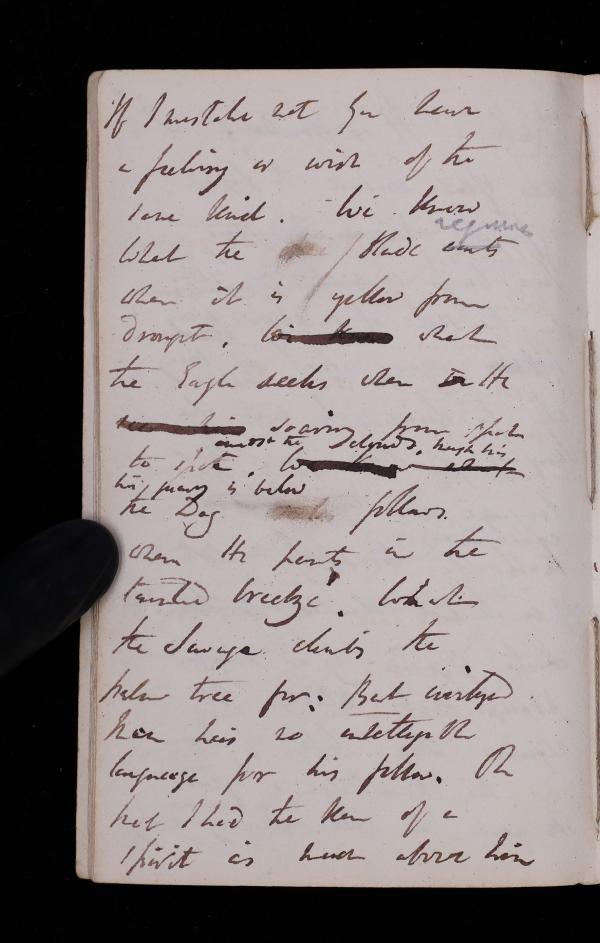 If I mistake not you have
a feeling or wish of the
same kind. We know
requires
What the Blade wants
when it is yellow from
drought. We know what
the Eagle seeks when He
soaring from spot
amidst the clouds, tough his
to spot.
his quarry is below
the Dog follows.
when He pants in the
tainted breeze. What
the Savage climbs the
palm tree for: But civilized
Man has no intelligible
language for his fellow. Oh
that I had the Ken of a
Spirit as much above him